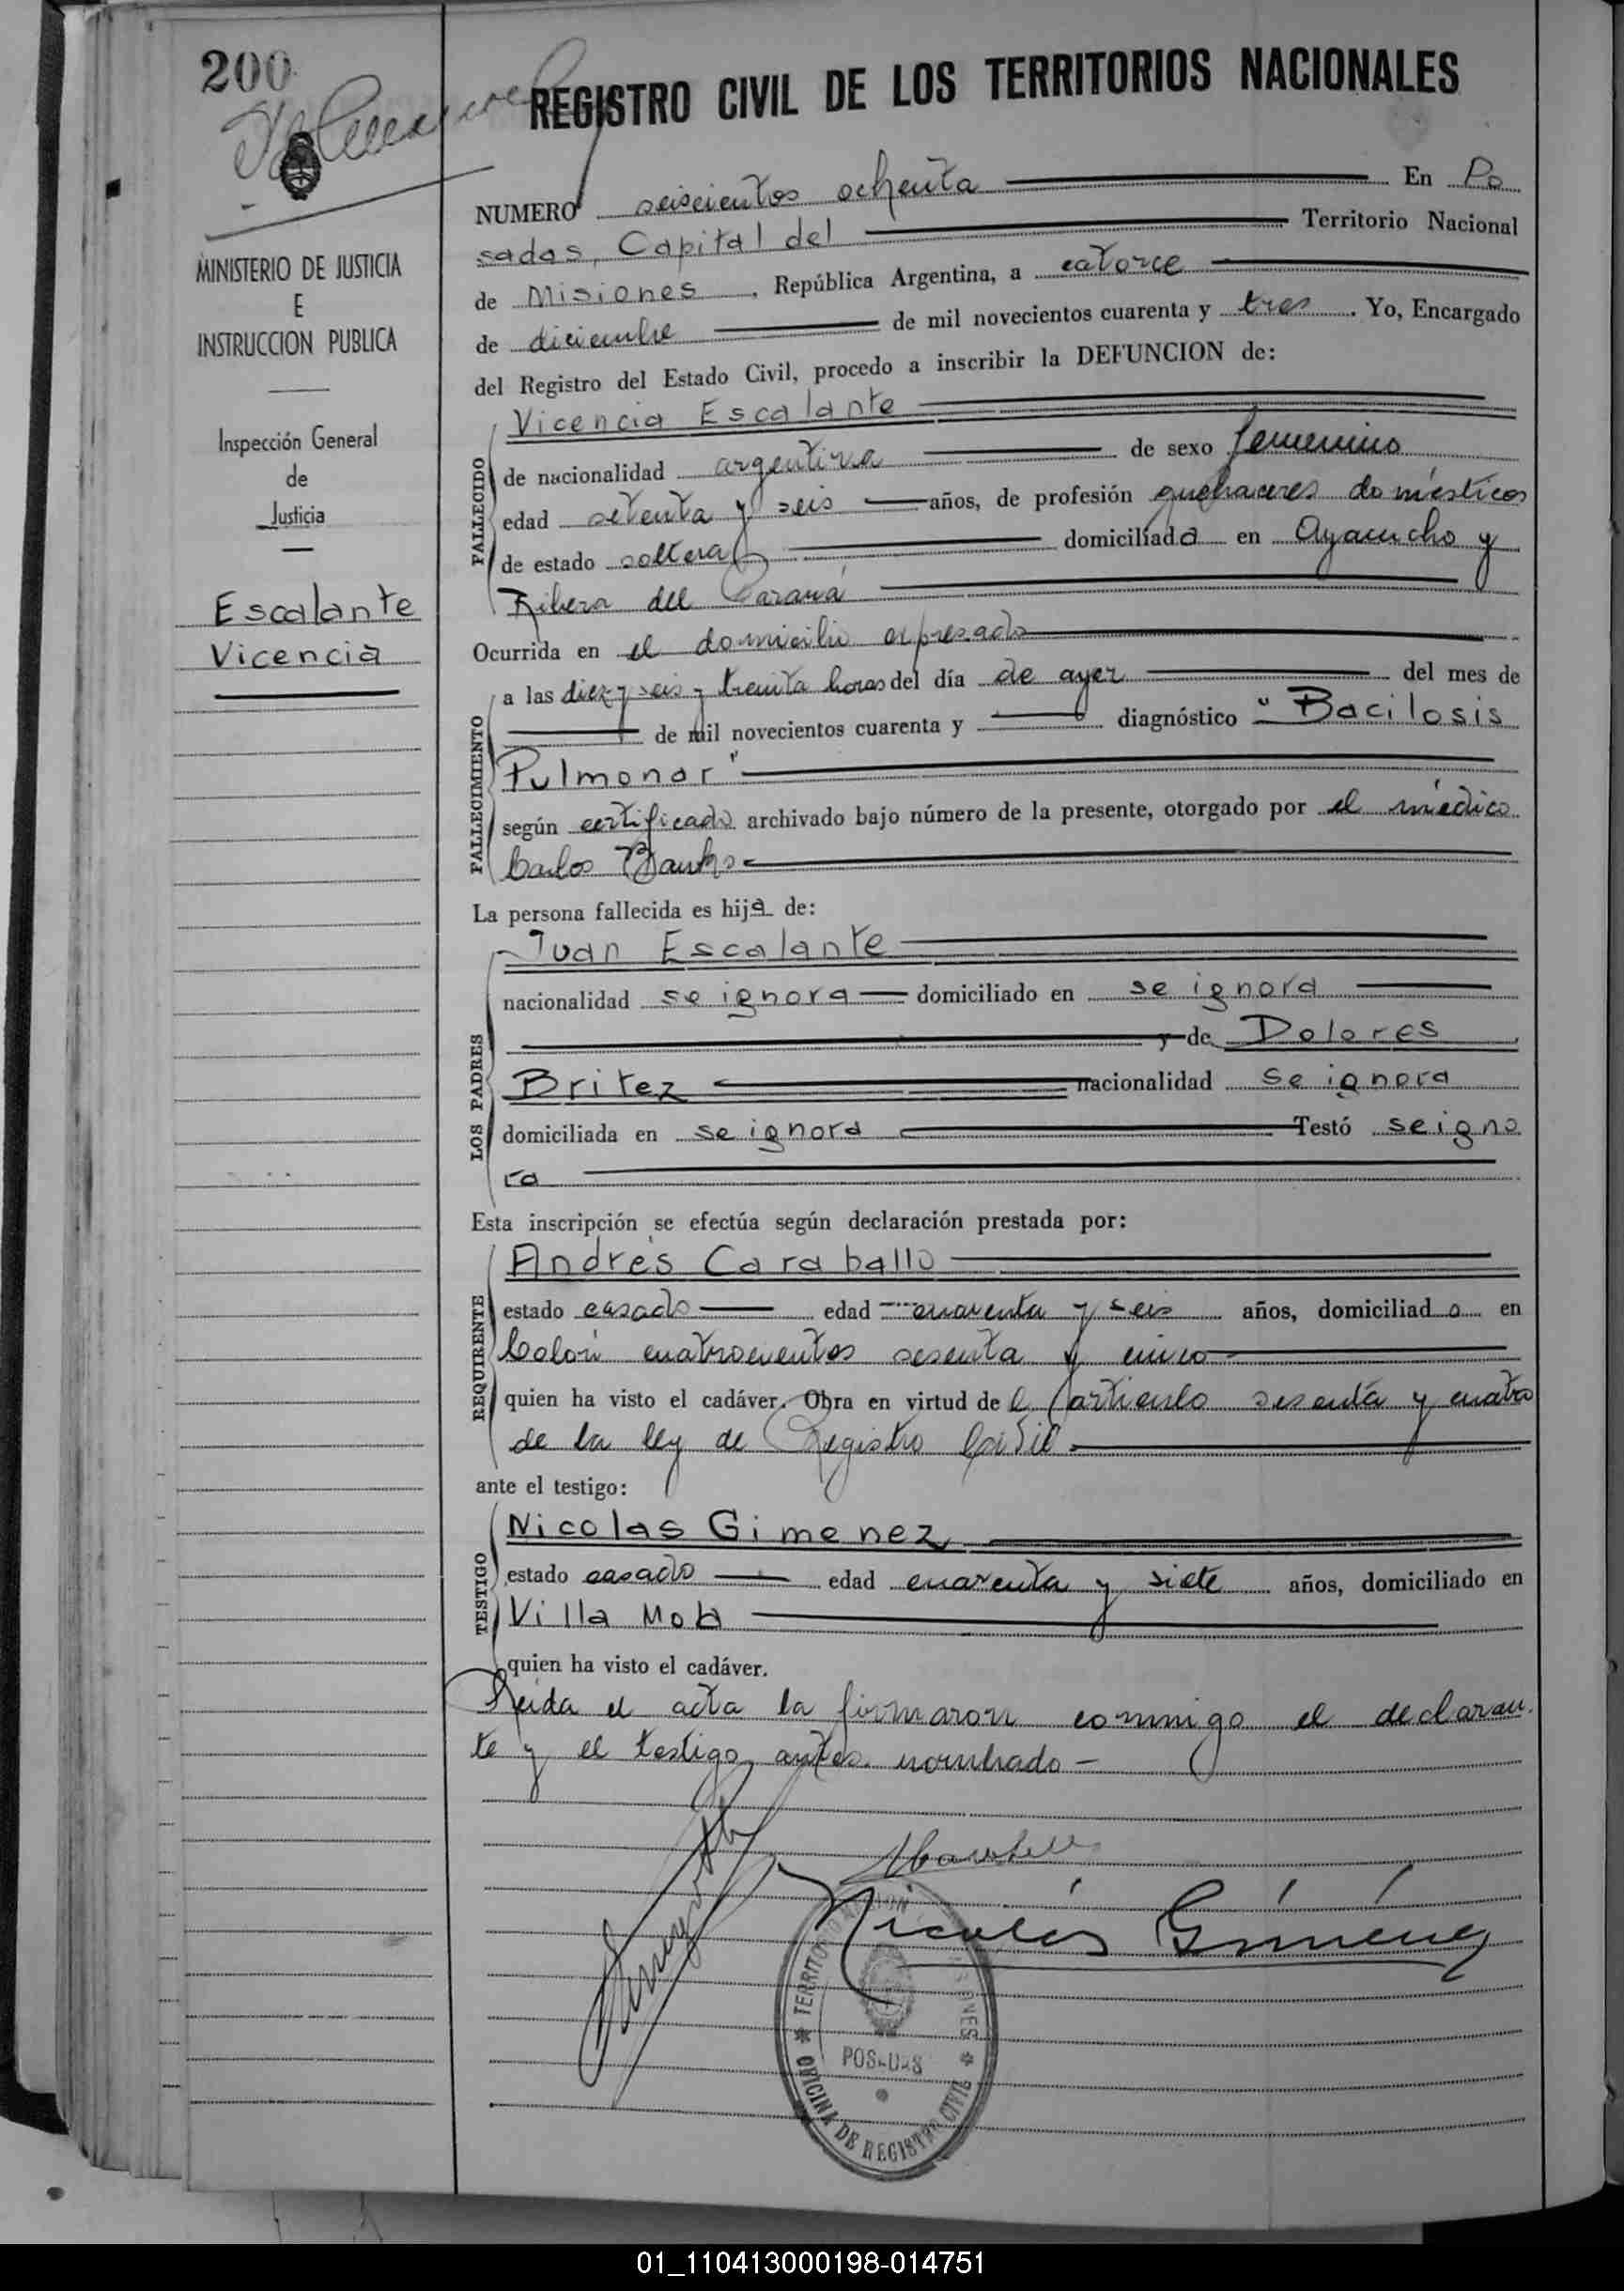 200
REGISTRO CIVIL DE LOS TERRITORIOS NACIONALES
NUMERO seiscientos ochenta En Po
sadas, Capital del Territorio Nacional
de Misiones, República Argentina, a catorce
de diciembre de mil novecientos cuarenta y tres. Yo, Encargado
del Registro del Estado Civil, procedo a inscribir la DEFUNCION de:
MINISTERIO DE JUSTICIA
E
INSTRUCCION PUBLICA
Inspección General
de
Justicia
Escalante
Vicencia
FALLECIDO
Vicencia Escalante
de nacionalidad argentina de sexo femenino
edad setenta y seis años, de profesión quehaceres domésticos
de estado soltera domiciliada en Ayacucho y
Ribera del Paraná
Ocurrida en el domicilio expresado
FALLECIMIENTO
a las diez y seis y treinta horas del día de ayer del mes de
de mil novecientos cuarenta y diagnóstico "Bacilosis
Pulmonar"
según certificado archivado bajo número de la presente, otorgado por el médico
Carlos
La persona fallecida es hija de:
LOS PADRES
Juan Escalante
nacionalidad se ignora domiciliado en se ignora
y de Dolores
Britez nacionalidad se ignora
domiciliada en se ignora Testó se igno
ra
Esta inscripción se efectúa según declaración prestada por:
REQUIRENTE
Andrés Caraballo
estado casado edad cuarenta y seis años, domiciliado en
Colón cuatrocientos sesenta y cinco
quien ha visto el cadáver. Obra en virtud del artículo sesenta y cuatro
de la ley de Registro Civil
ante el testigo:
TESTIGO
Nicolas Gimenez
estado casado edad cuarenta y siete años, domiciliado en
Villa
quien ha visto el cadáver.
Leida el acta la firmaron conmigo el declaran
te y el testigo antes nombrado -
Nicolás Giménez
TERRITORIO MISIONES
POSADAS
OFICINA DE REGISTRO CIVIL
01_110413000198-014751